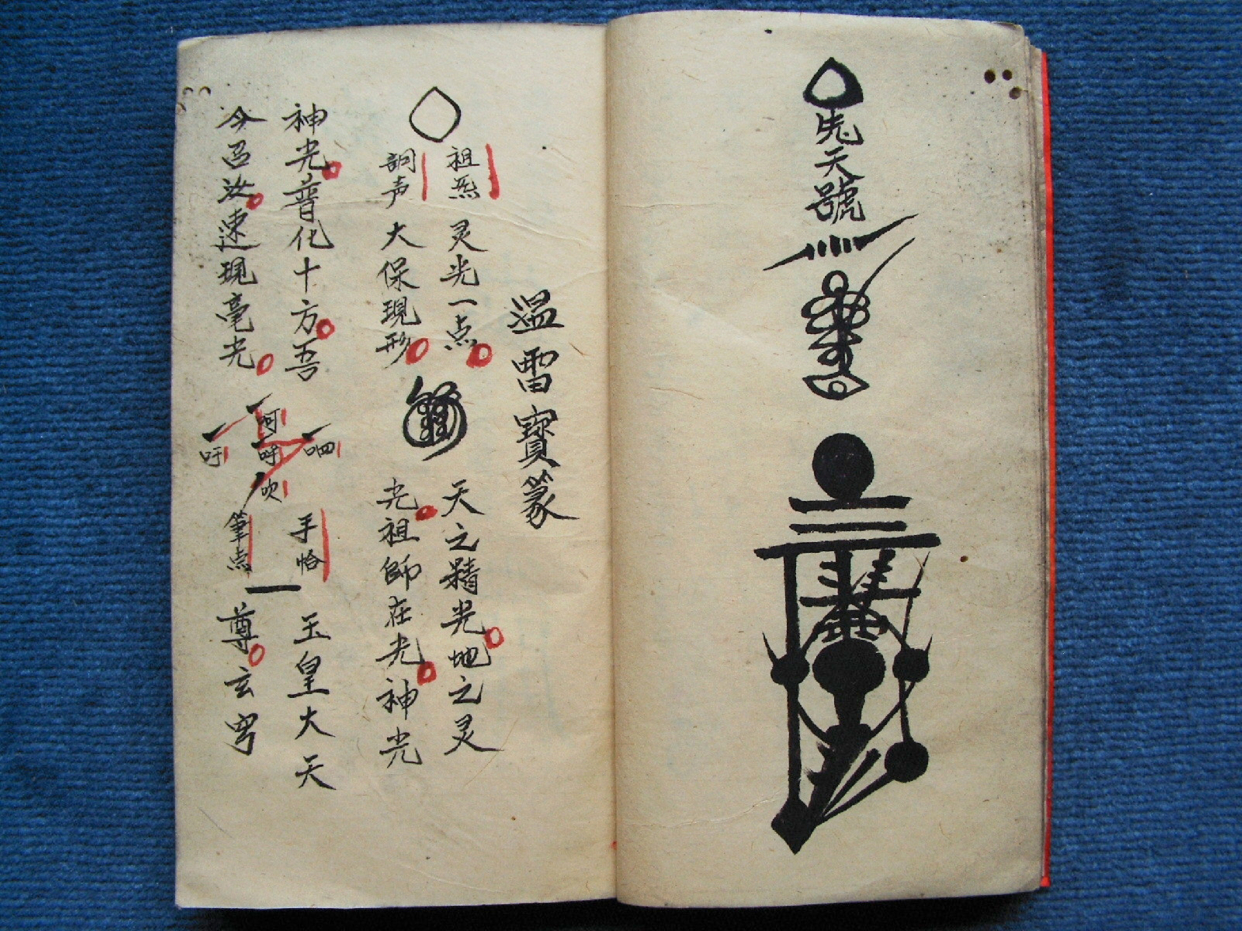 先天號
溫雷寶篆
祖炁
灵光一点
調声
大保現形
天之精光地之灵
光祖師在光神光
神光普化十方吾
今召汝速現毫光
呵
吽
呬
吁
吹
手恰
筆点
玉皇大天
尊玄穹